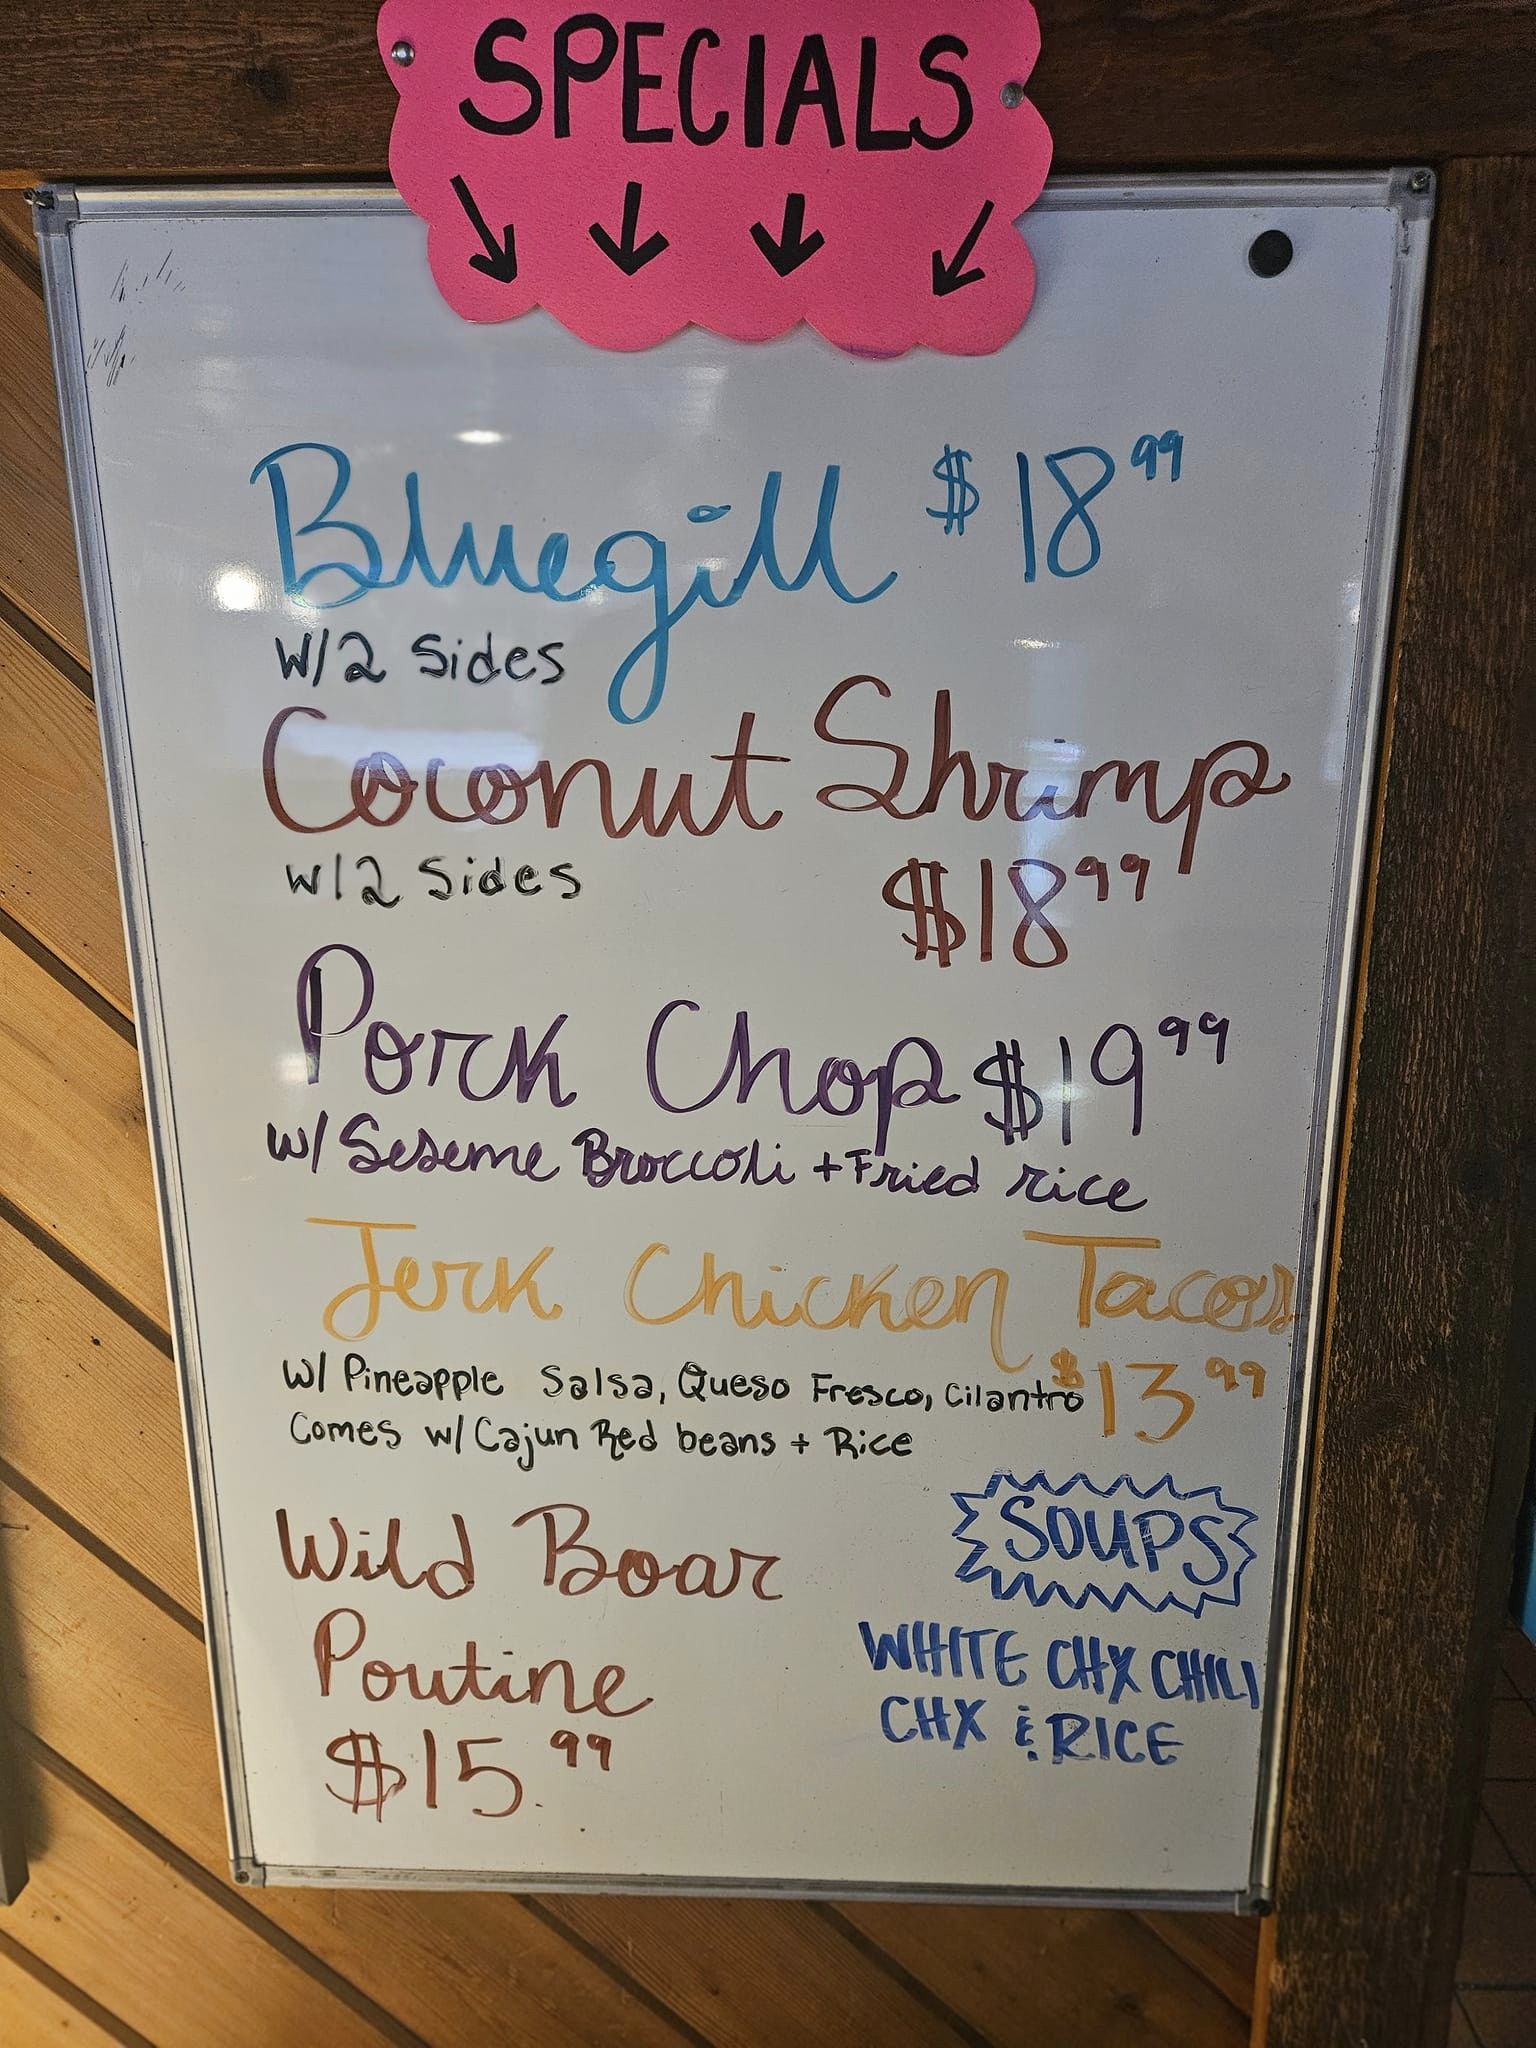 SPECIALS
Bluegill $18.99
W/2 Sides
Coconut Shrimp
W/2 Sides $18.99
Pork Chop $19.99
W/ Seseme Broccoli + Fried rice
Jerk Chicken Tacos
W/ Pineapple Salsa, Queso Fresco, Cilantro $13.99
Comes w/ Cajun Red beans + Rice
Wild Boar
Poutine
$15.99
SOUPS
WHITE CHX CHILI
CHX & RICE